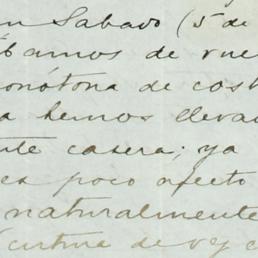 un Sabado (5 de
íbamos de vue
onótona de cos
a hemos lleva
nte casera; ya
es poco afecto
naturalmente
de vez